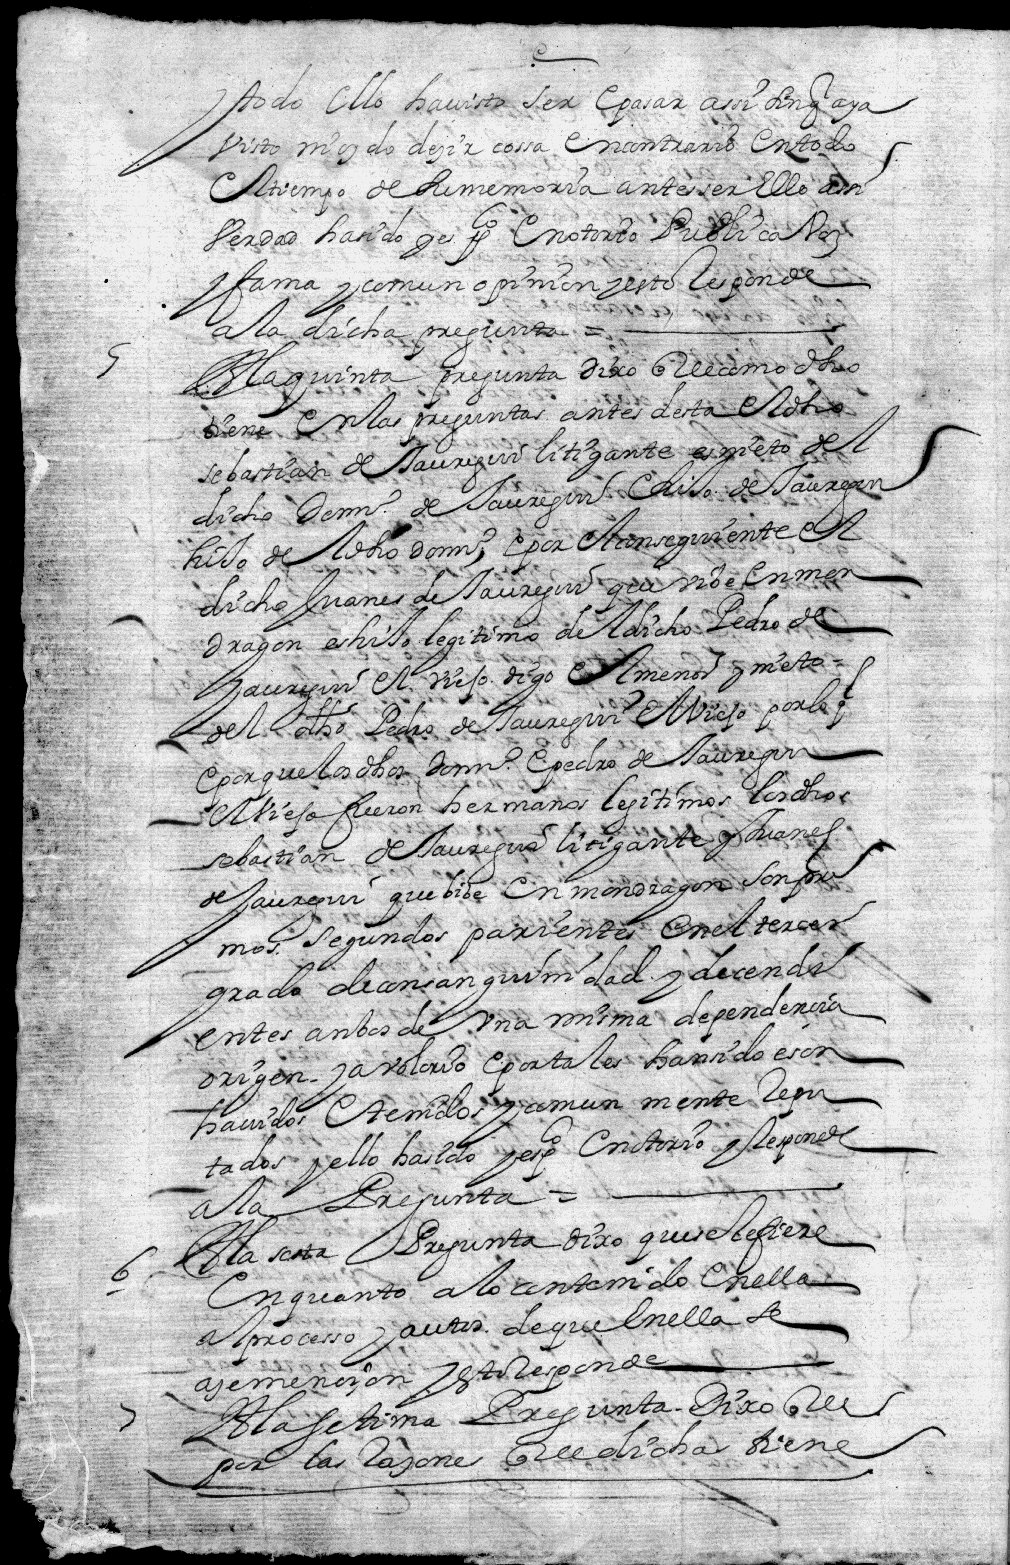 todo ello ha visto ser e pasar assi sin q aya
visto ni oydo dezir cossa en contrario en todo
el tiempo de su memoria antes ser ello assi
verdad ha sido y es pco e notorio publica voz
y fama y comun opinion y esto responde
a la dicha pregunta =
5 A la quinta pregunta dixo que como dho
tiene en las preguntas antes desta el dho
sebastian de Jauregui litigante es nieto del
dicho Domos de Jauregui e hijo de Jauregui
hijo de el dho domos e por el consiguiente el
dicho Juanes de Jauregui que vibe en mon
dragon es hijo legitimo del dicho Pedro de
Jauregui el viejo digo el menor y nieto =
del dho Pedro de Jauregui el viejo por lo q
e porque los dhos domos e pedro de Jauregui
el viejo fueron hermanos legitimos los dhos
sebastian de Jauregui litigante y Juanes
de Jauregui que bibe en mondragon son pri
mos segundos parientes en el tercer
grado de consanguinidad y decendi
entes anbos de una misma dependencia
origen y abolorio e por tales han sido e son
havidos e tenidos y comun mente repu
tados y ello ha sido y es pco e notorio y responde
a la Pregunta =
6 A la sesta Pregunta dixo que se refiere
en quanto a lo contenido en ella
al processo y autos de que en ella se
aze mencion y esto responde
7 A la setima Pregunta dixo que
por las razones que dichas tiene